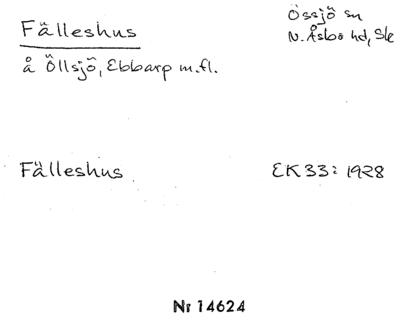 Fälleshus
Össjö sn
N. Åsbo hd, Sk
å Öllsjö, Ebbarp m.fl.
Fälleshus EK 33: 1928
Nr 14624